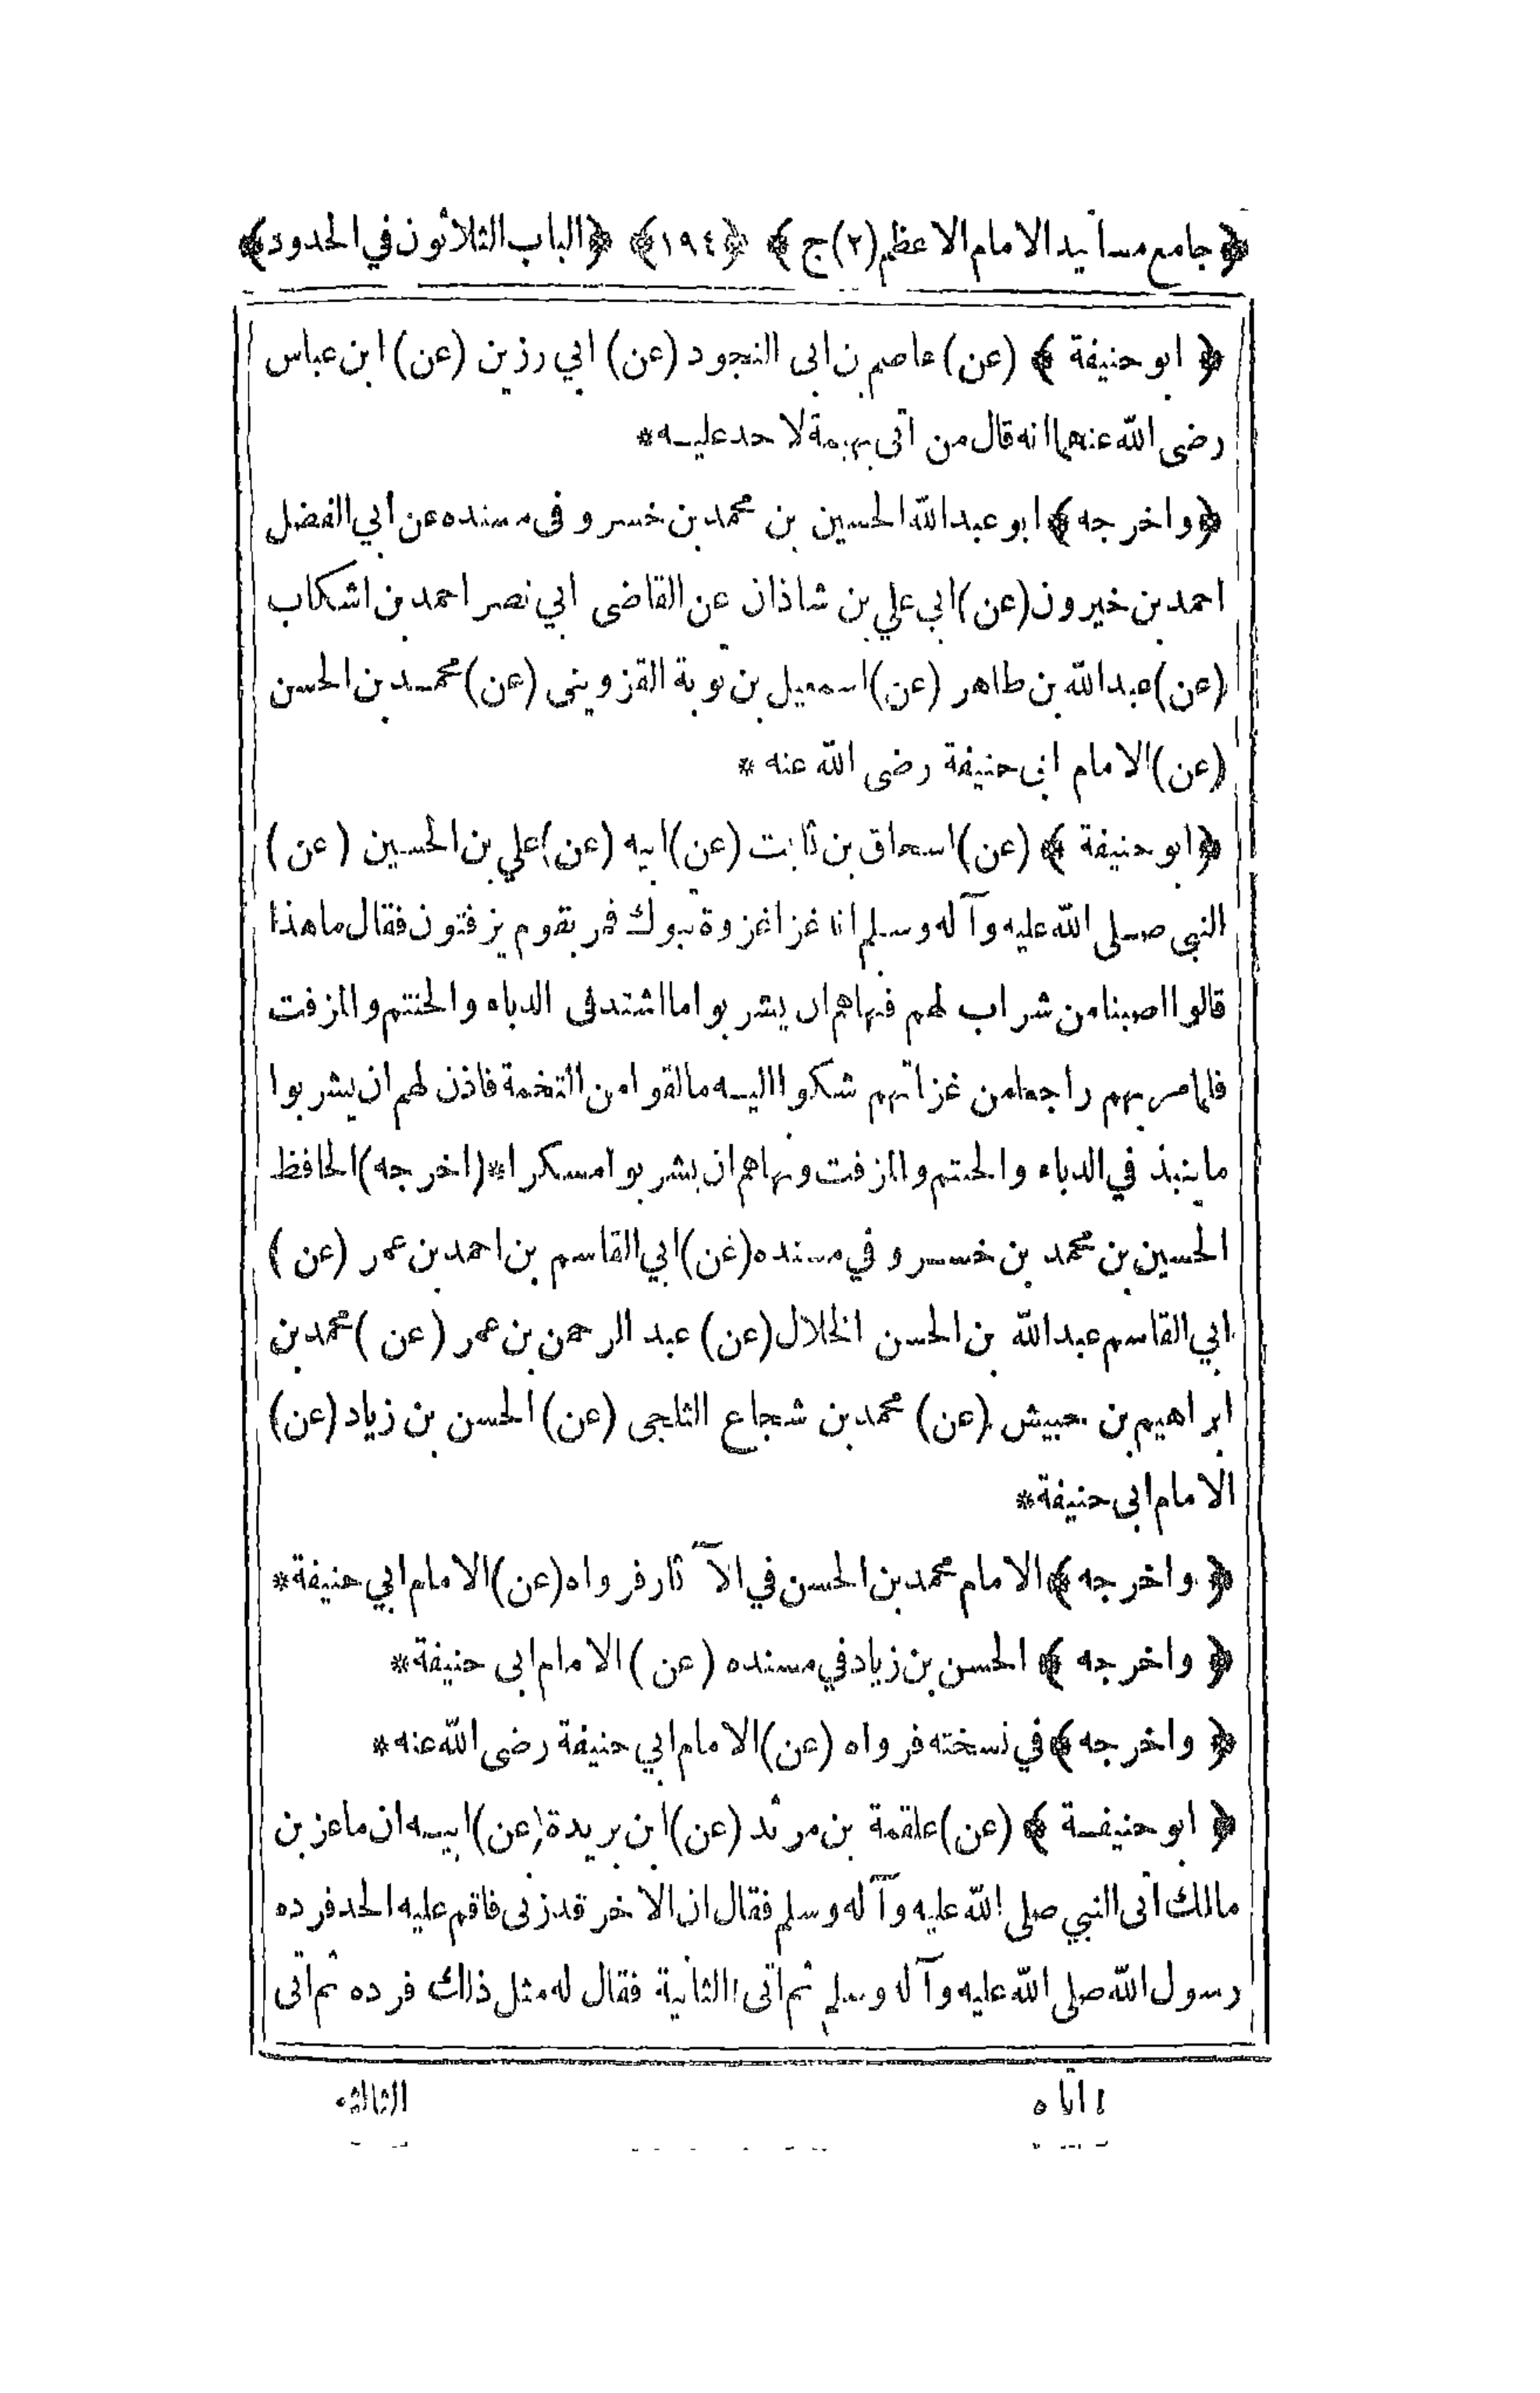 ﴿جامع مسانيد الامام الاعظم (٢) ج﴾ ﴿١٩٤﴾ ﴿الباب الثلاثون في الحدود﴾
﴿ ابو حنيفة ﴾ (عن) عاصم بن ابى النجود (عن) ابي رزين (عن) ابن عباس
رضى الله عنهما انه قال من اتى بهيمة لا حد عليه *
﴿واخرجه﴾ ابو عبد الله الحسين بن محمد بن خسرو فى مسنده عن ابي الفضل
احمد بن خيرون (عن) ابي علي بن شاذان عن القاضى ابي نصر احمد بن اشكاب
(عن) عبد الله بن طاهر (عن) اسمعيل بن توبة القزوينى (عن) محمد بن الحسن
(عن) الامام ابى حنيفة رضى الله عنه *
﴿ابو حنيفة ﴾ (عن) اسحاق بن ثابت (عن) ابيه (عن) علي بن الحسين (عن)
النبي صلى الله عليه وآله وسلم انا غزا غزوة تبوك فمر بقوم يزفتون فقال ما هذا
قالوا اصبنا من شراب لهم فنهاهم ان يشربوا ما اشتد فى الدباء والحنتم والمزفت
فلما مر بهم راجعا من غزاتهم شكوا اليه ما لقوا من التخمة فاذن لهم ان يشربوا
ما ينبذ في الدباء والحنتم والمزفت ونهاهم ان يشربوا مسكرا * (اخرجه) الحافظ
الحسين بن محمد بن خسرو في مسنده (عن) ابي القاسم بن احمد بن عمر (عن)
ابي القاسم عبد الله بن الحسن الخلال (عن) عبد الرحمن بن عمر (عن) محمد بن
ابراهيم بن حبيش (عن) محمد بن شجاع الثلجى (عن) الحسن بن زياد (عن)
الامام ابى حنيفة *
﴿ واخرجه ﴾ الامام محمد بن الحسن في الآثار فرواه (عن) الامام ابي حنيفة *
﴿ واخرجه ﴾ الحسن بن زياد في مسنده (عن) الامام ابى حنيفة *
﴿ واخرجه ﴾ في نسخته فرواه (عن) الامام ابي حنيفة رضى الله عنه *
﴿ ابو حنيفة ﴾ (عن) علقمة بن مرثد (عن) ابن بريدة (عن) ابيه ان ماعز بن
مالك اتى النبي صلى الله عليه وآله وسلم فقال ان الاخر قد زنى فاقم عليه الحد فرده
رسول الله صلى الله عليه وآله وسلم ثم اتى ١ الثانية فقال له مثل ذلك فرده ثم اتى
١ اتاه
الثالثة